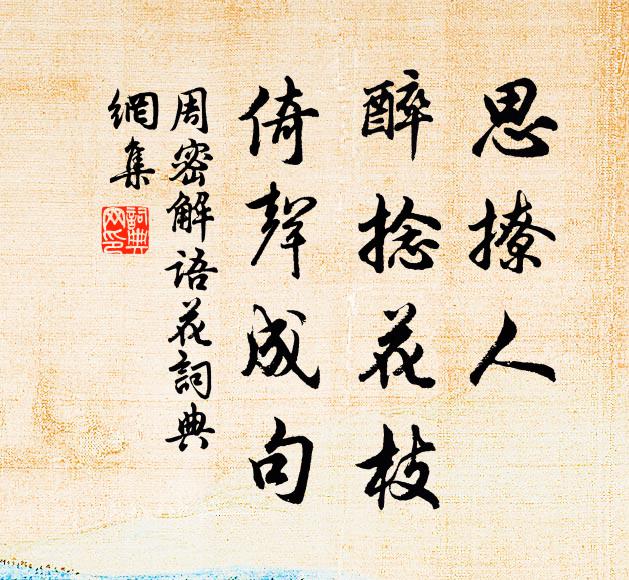 思撩人
醉捻花枝
倚聲成句
周密解語花詞典
網集
詞典
网印